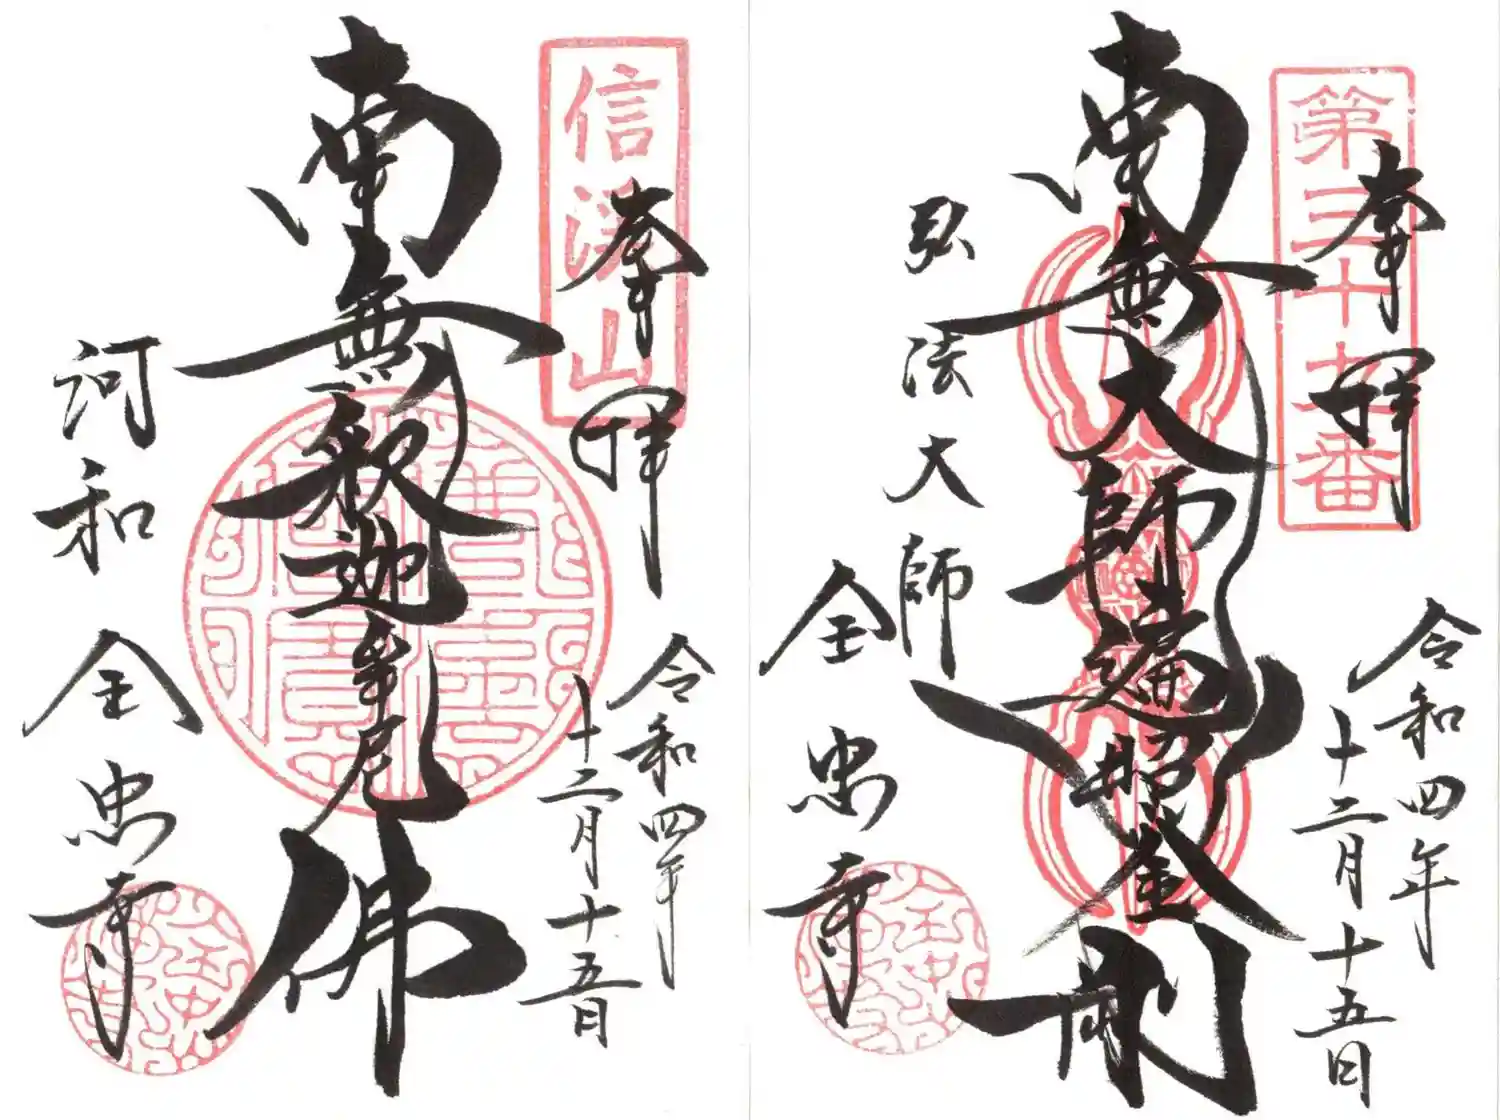 信渓山
奉拝
令和四年
十二月十五日
南無釈迦牟尼佛
河和
全忠寺
第三十九番
奉拝
令和四年
十二月十五日
南無大師遍照金剛
弘法大師
全忠寺